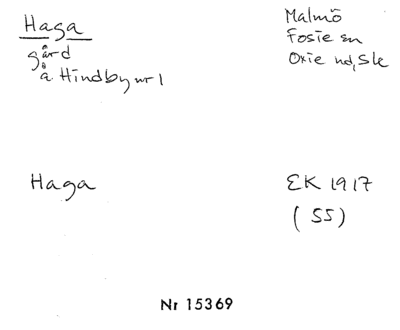 Haga
gård
å. Hindby nr 1
Malmö
Fosie sn
Oxie hd, Sk
Haga
EK 1917
(55)
Nr 15369